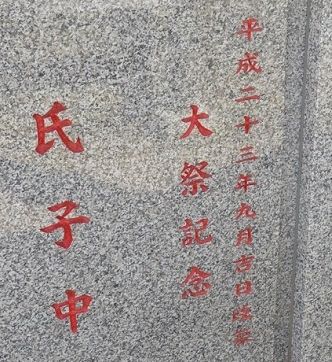 平成二十三年九月吉日
大祭記念
氏子中